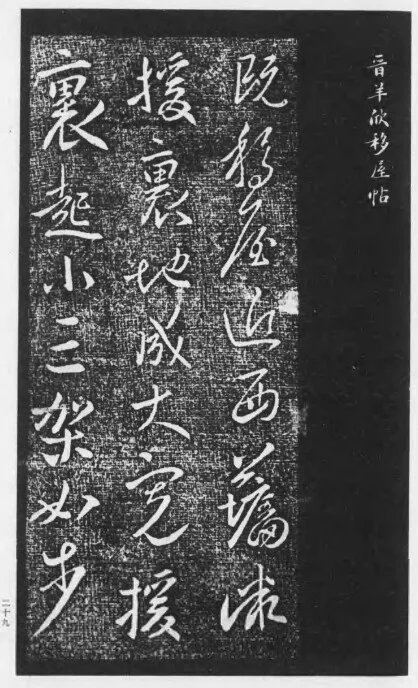 晉羊欣移屋帖
既移屋近西牆
援裏地成大寬援
裏起小三架如步
二十九